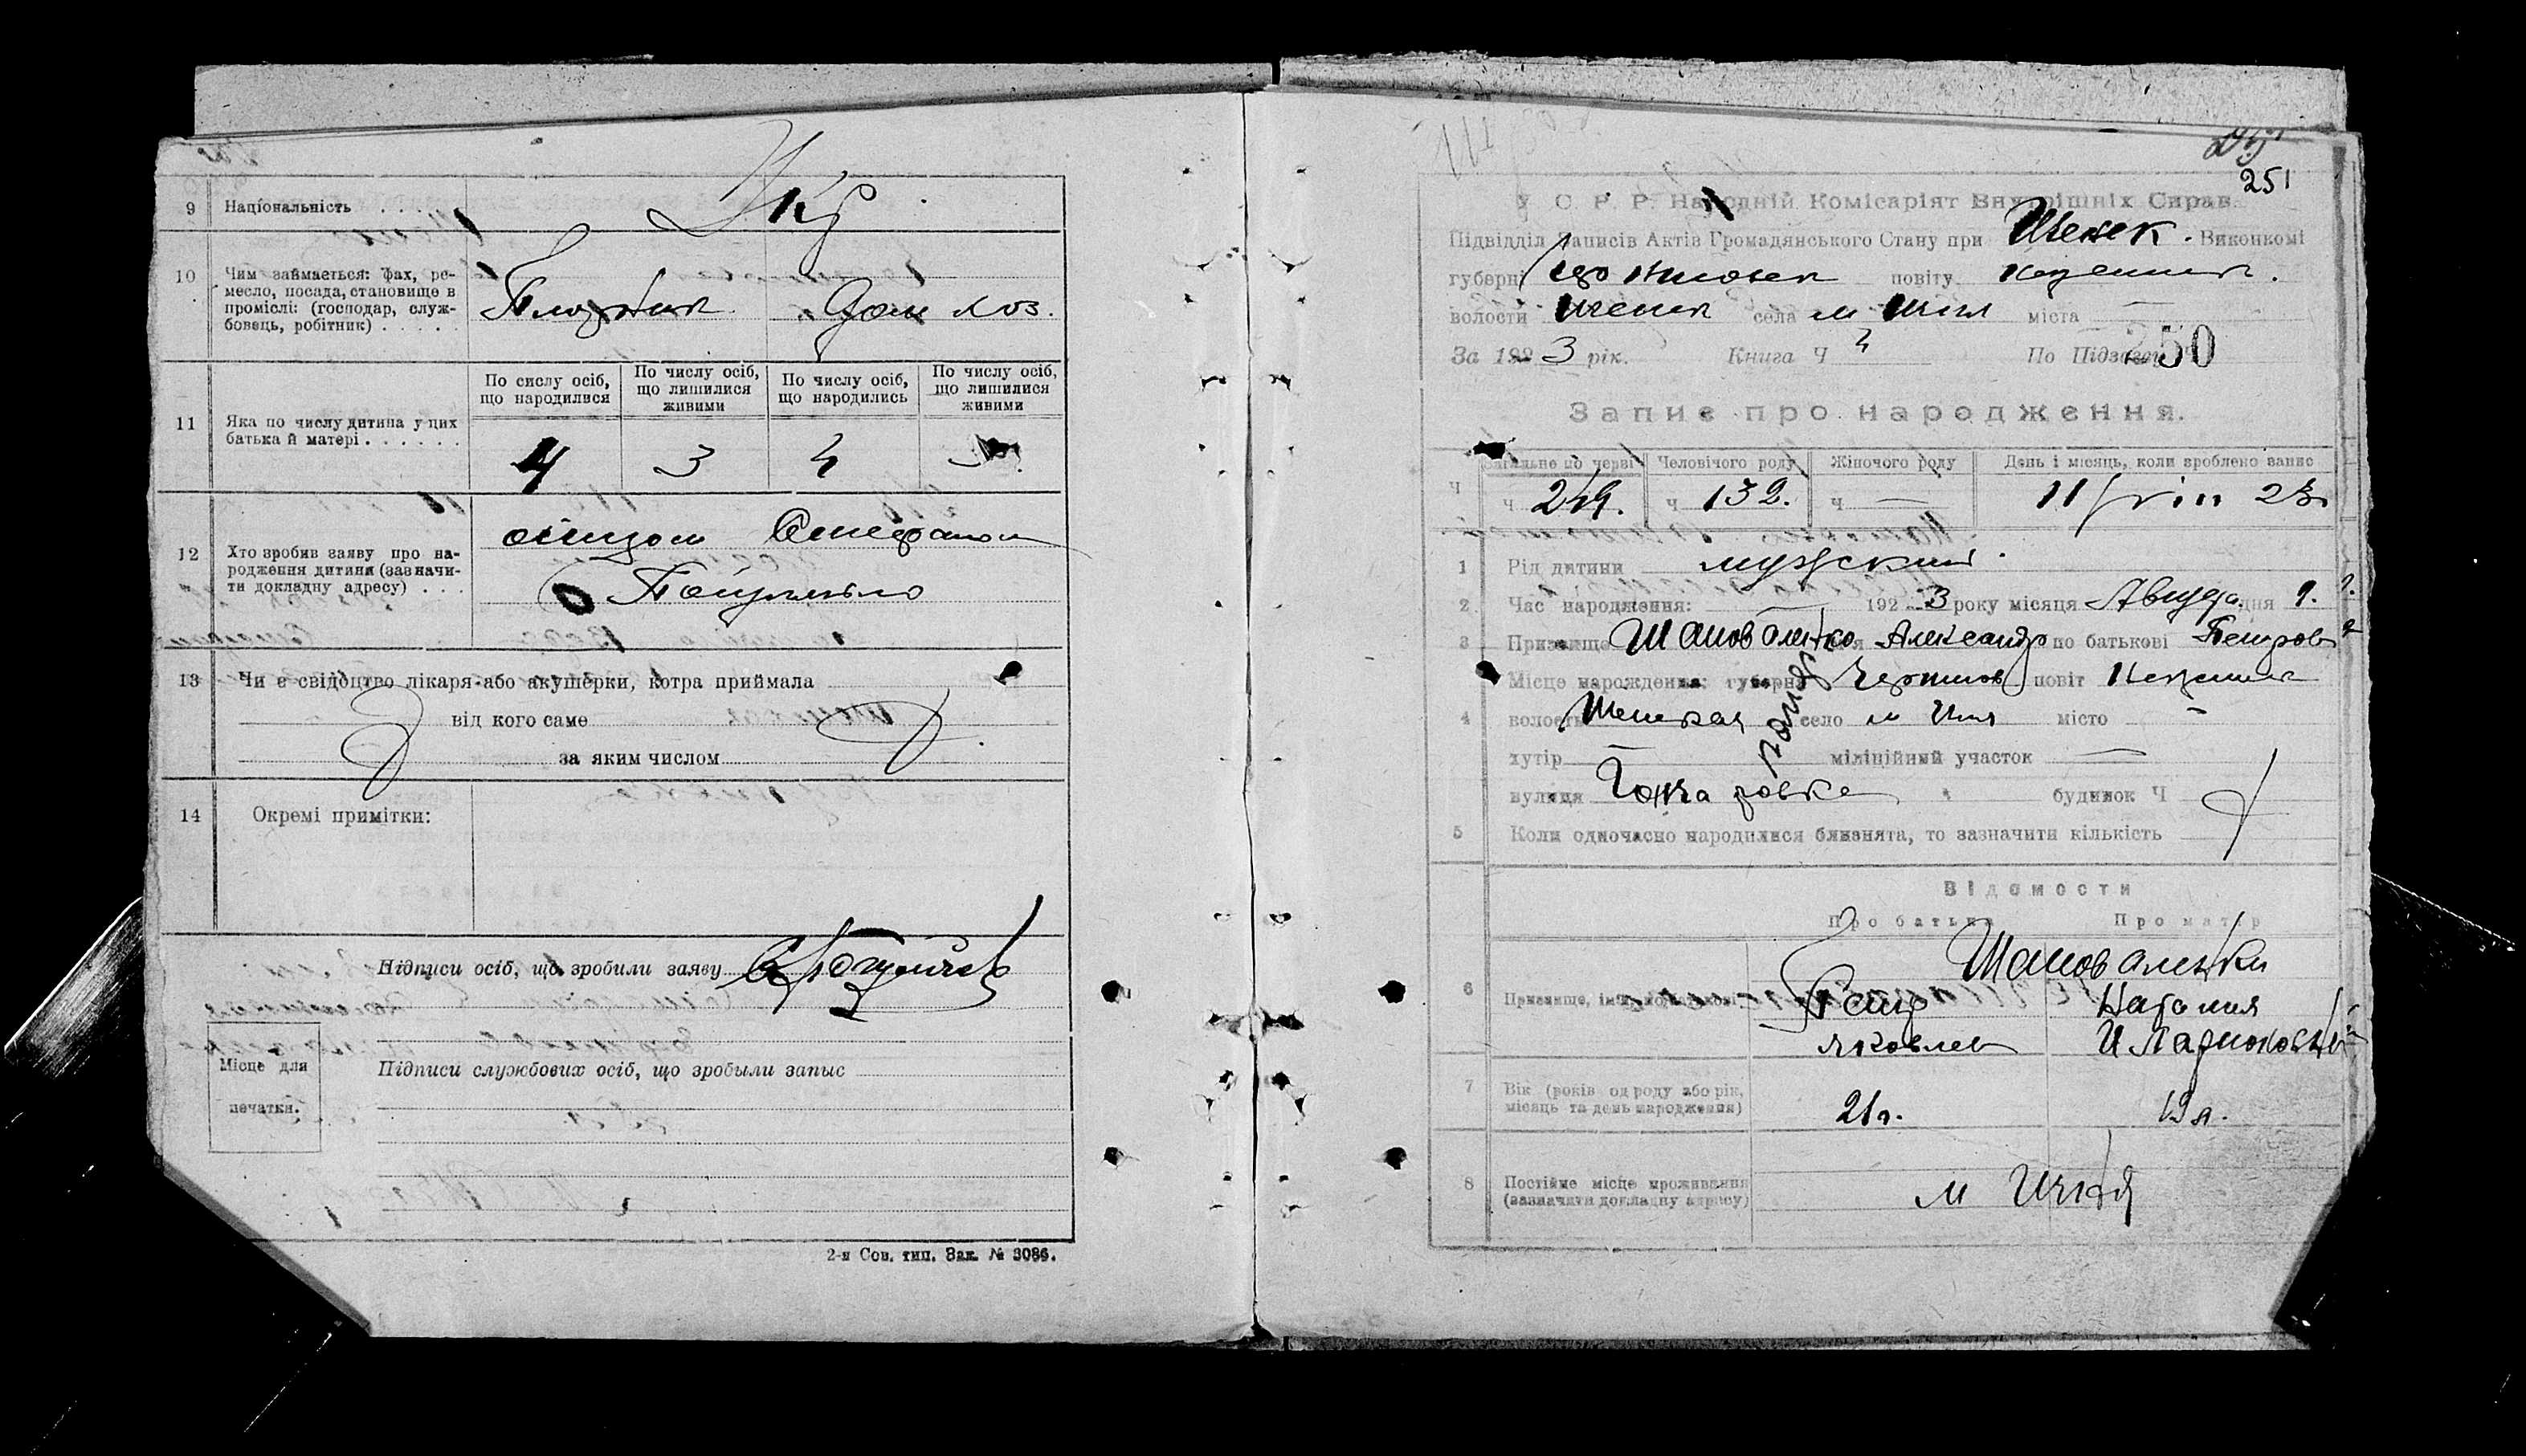 9 Національність . . . . Укр
10 Чим займається: фах, ре-
месло, посада, становище в
проміслі: (господар, служ-
бовець, робітник) . . . . .
Плотник Дом хоз.
11 Яка по числу дитина у цих
батька й матері . . . . . .
По сислу осіб, що народилися
По числу осіб, що лишилися живими
По числу осіб, що народились
По числу осіб, що лишилися живими
4 3 4
12 Хто зробив заяву про на-
родження дитини (зазначи-
ти докладну адресу) . . .
отцом Стефаном
13 Чи є свідоцтво лікаря або акушерки, котра приймала
від кого саме
за яким числом
14 Окремі примітки:
Підписи осіб, що зробили заяву
Місце для
печатки.
Підписи службових осіб, що зробыли запыс
2-я Сов. тип. Зак. № 3086.
251
У. С. Р. Р. Народній Комісаріят Внутрішніх Справ.
Підвідділ Записів Актів Громадянського Стану при Ичнск. Виконкомі
губерні повіту Нежинск.
волости Ичнск села м Ичня міста —
За 1923 рік. Книга Ч 4 По Підзагол. Ч
250
Запис про народження.
Загальне по черзі Человічого роду Жіночого роду День і місяць, коли зроблено запис
Ч ч 249. ч 132. ч — 11/VIII 23
1 Рід дитини мужский
2 Час народження: 1923 року місяця Августа дня 9.
3 Призвище Шаповаленко Александр по батькові Петров
4 Місце нарождення: губерня Чернигов повіт Нежинск
волость Ичнская село м Ичня місто —
хутір — міліційний участок —
вулиця Гончаровка будинок Ч
5 Коли одночасно народилися близнята, то зазначити кількість
Відомости
Про батька Про матір
6 Призвище, ім'я, по батькові
Шаповаленки
Петр Наталия
Яковлев Иларионовна
7 Вік (років од роду або рік,
місяць та день народження)
21 л. 19 л.
8 Постійне місце проживання
(зазначити докладну адресу)
м Ичня